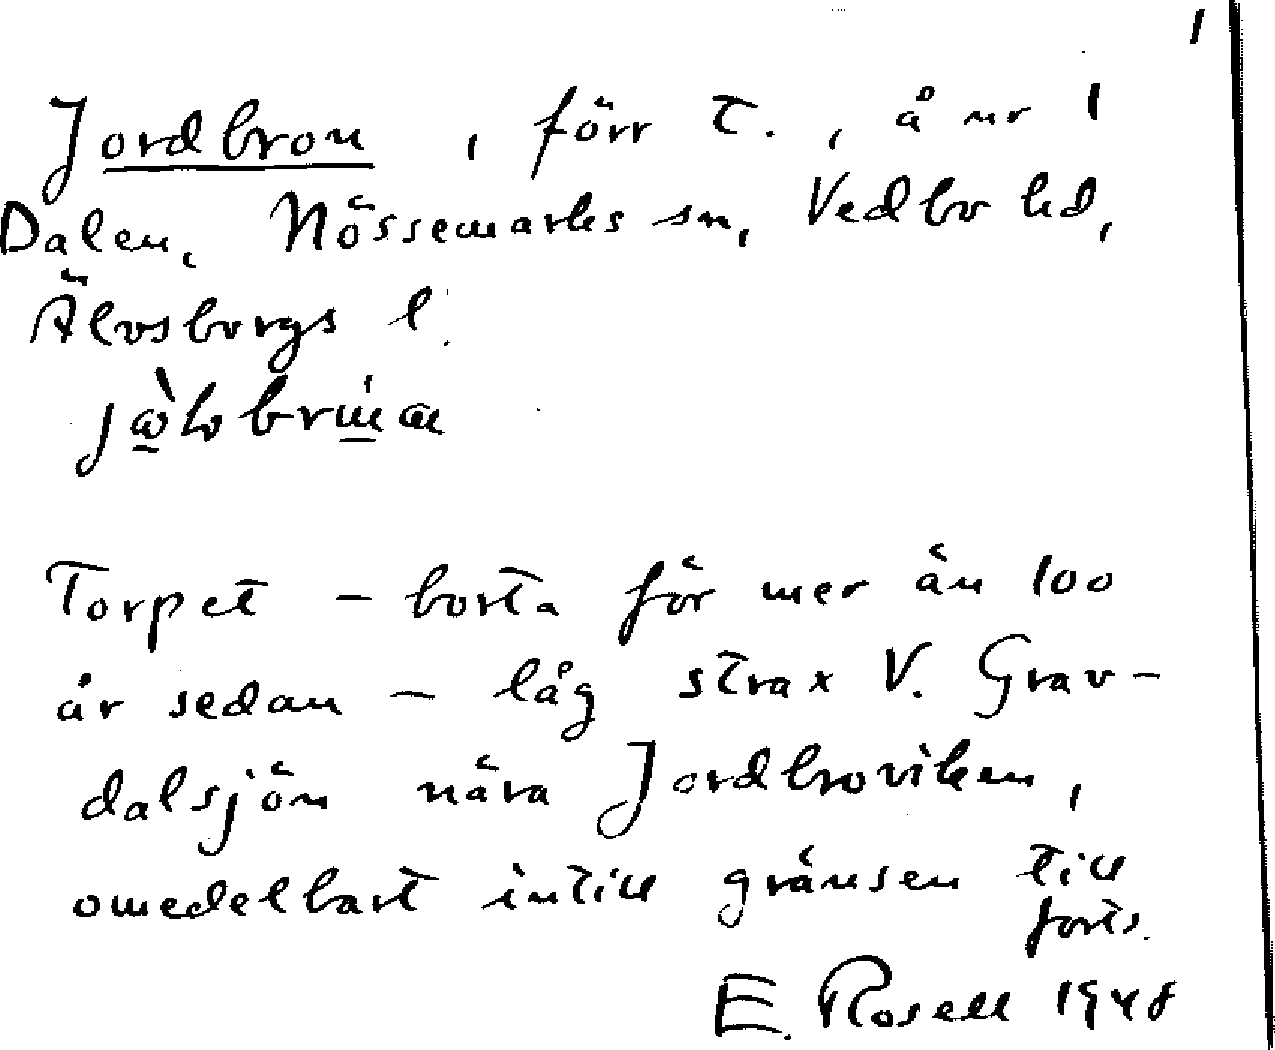 1
Jordbron, förr t., å nr 1
Dalen, Nössemarks sn, Vedbo hd,
Älvsborgs l.
Torpet - borta för mer än 100
år sedan - låg strax V. Grav-
dalsjön nära Jordbroviken,
omedelbart intill gränsen till
forts.
E. Rosell 1948